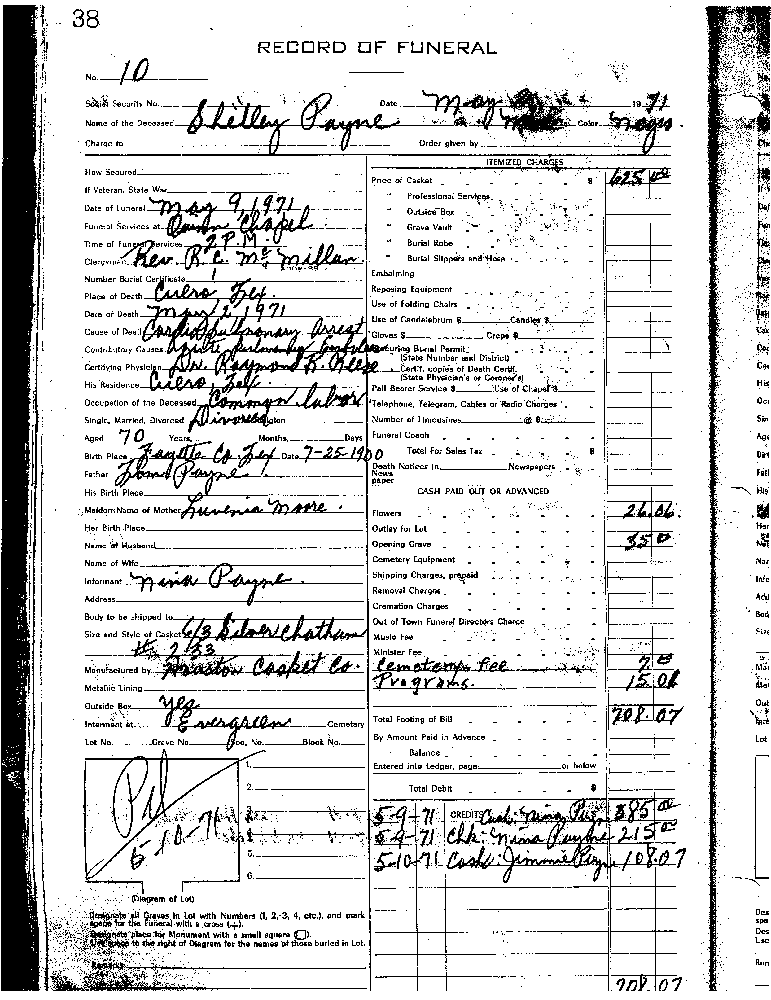 38
RECORD OF FUNERAL
No. 10
Social Security No. Date May 1971
Name of the Deceased Shelley Payne Color Negro
Charge to Order given by
How Secured
If Veteran, State War
Date of Funeral May 9, 1971
Funeral Services at Quinn Chapel
Time of Funeral Services 2 P.M.
Clergyman Rev. R. C. McMillan
Number Burial Certificate
Place of Death Cuero, Tex.
Date of Death May 2, 1971
Cause of Death Cardio Pulmonary Arrest
Contributory Causes Acute Pulmonary
Certifying Physician Dr. Raymond R. Reese
His Residence Cuero, Tex.
Occupation of the Deceased Common labor
Single, Married, Divorced Divorced
Aged 70 Years, Months, Days
Birth Place Fayette Co. Tex Date 7-25-1900
Father Payne
His Birth Place
Maiden Name of Mother Luvenia Moore
Her Birth Place
Name of Husband
Name of Wife
Informant Nina Payne
Address
Body to be shipped to
Size and Style of Casket 6/3 Silver Chatham
# 2133
Manufactured by Houston Casket Co.
Metallic Lining
Outside Box Yes
Interment at Evergreen Cemetery
Lot No. Grave No. Block No.
Pd
5-10-71
1.
2.
3.
4.
5.
6.
(Diagram of Lot)
Designate all Graves in Lot with Numbers (1, 2, 3, 4, etc.), and mark
space for the Funeral with a cross (+).
Designate place for Monument with a small square (□).
Use space to the right of Diagram for the names of those buried in Lot.
ITEMIZED CHARGES
Price of Casket $ 625.00
" Professional Services
" Outside Box
" Grave Vault
" Burial Robe
" Burial Slippers and Hose
Embalming
Reposing Equipment
Use of Folding Chairs
Use of Candelabrum $ Candles $
Gloves $ Crepe $
Securing Burial Permit
(State Number and District)
Certf. copies of Death Certif.
(State Physician's or Coroner's)
Pall Bearer Service $ Use of Chapel $
Telephone, Telegram, Cables or Radio Charges
Number of Limousines @ $
Funeral Coach
Total For Sales Tax $
Death Notices in Newspapers
News
paper
CASH PAID OUT OR ADVANCED
Flowers 26.06
Outlay for Lot
Opening Grave 35.00
Cemetery Equipment
Shipping Charges, prepaid
Removal Charges
Cremation Charges
Out of Town Funeral Directors Charge
Music Fee
Minister Fee
Cemetery Fee 7.00
Programs 15.01
Total Footing of Bill 708.07
By Amount Paid in Advance
Balance
Entered into Ledger, page or below
Total Debit $
5-9-71 CREDITS Cash: Nina Payne 385.00
5-9-71 Chk: Nina Payne 215.00
5-10-71 Cash: Jimmie Payne 108.07
708.07